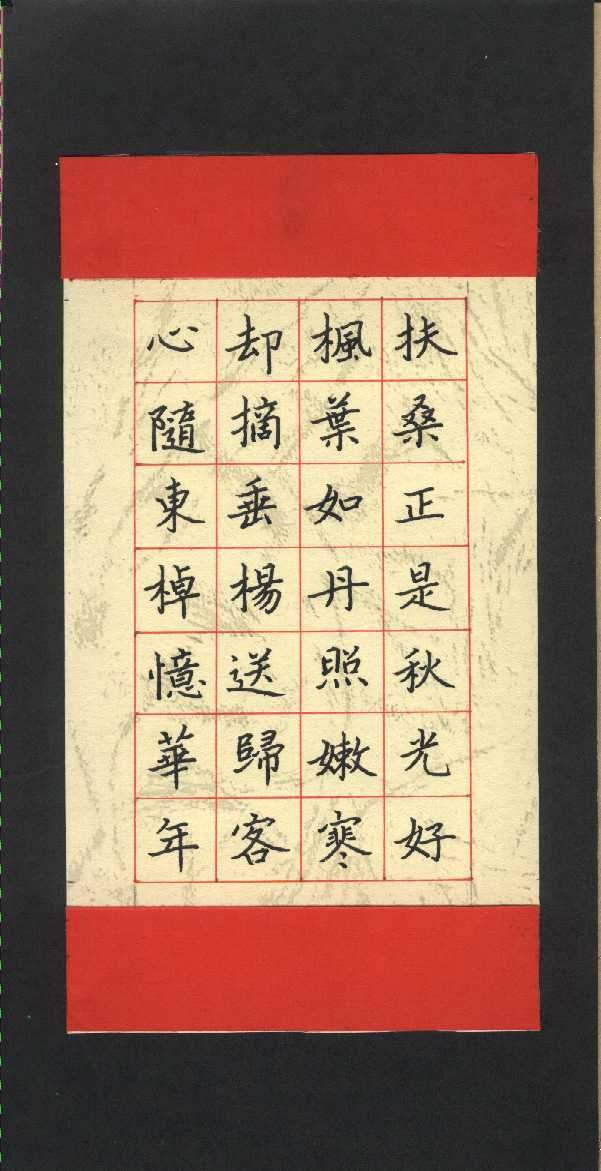 扶桑正是秋光好
楓葉如丹照嫩寒
却摘垂楊送歸客
心隨東棹憶華年